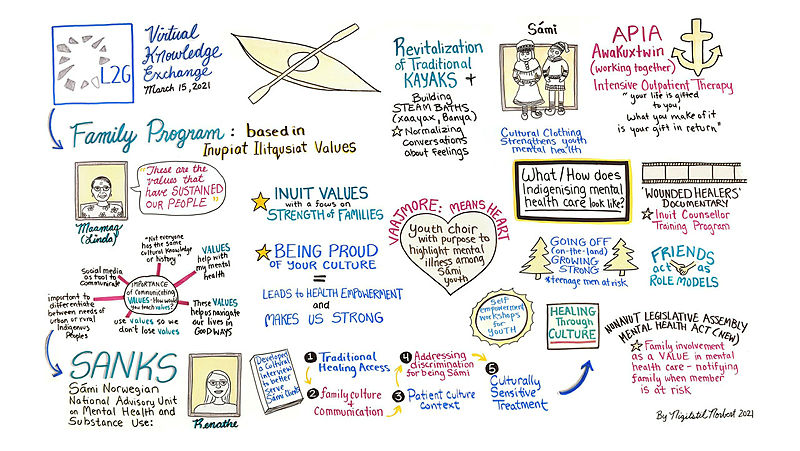 L2G
Virtual
Knowledge
Exchange
March 15, 2021
Revitalization
of Traditional
KAYAKS +
Building
STEAM BATHS
(xaayax, Banya)
☆ Normalizing
conversations
about feelings
Sámi
Cultural Clothing
Strengthens youth
mental health
APIA
Awakuxtwin
(working together)
Intensive Outpatient Therapy
"your life is gifted
to you,
what you make of it
is your gift in return"
Family Program: based in
Inupiat Ilitqusiat Values
"These are the
values that
have SUSTAINED
OUR PEOPLE"
Maamag
(Linda)
INUIT VALUES
with a focus on
STRENGTH OF FAMILIES
BEING PROUD
OF YOUR CULTURE
=
LEADS to HEALTH EMPOWERMENT
and
MAKES US STRONG
VAAJMORE: MEANS HEART
Youth choir
with purpose to
highlight mental
illness among
Sámi
youth
What/How does
Indigenising mental
health care look like?
'WOUNDED HEALERS'
DOCUMENTARY
☆ Inuit Counsellor
Training Program
GOING OFF
(on-the-land)
GROWING
STRONG
*teenage men at risk
FRIENDS
act as
ROLE MODELS
"Not everyone
has the same
cultural knowledge
or history"
VALUES
help with
my mental
health
Social media
as tool to
communicate
IMPORTANCE
of Communicating
VALUES - How would
You teach values?
important to
differentiate
between needs of
urban or rural
Indigenous
Peoples
use VALUES so we
don't lose VALUES
These VALUES
help us navigate
our lives in
GOOD WAYS
Self
empowerment
workshops
for YOUTH
HEALING
Through
CULTURE
NUNAVUT LEGISLATIVE ASSEMBLY
MENTAL HEALTH ACT (NEW)
☆ Family involvement
as a VALUE in mental
health care - notifying
family when member
is at risk
SANKS
Sámi Norwegian
National Advisory Unit
on Mental Health and
Substance Use:
Renathe
Developed
a Cultural
Interview
to better
serve
Sámi Clients
1 Traditional
Healing Access
2 family culture
+
Communication
3 Patient culture
Context
4 Addressing
discrimination
for being Sámi
5
Culturally
Sensitive
Treatment
By 2021